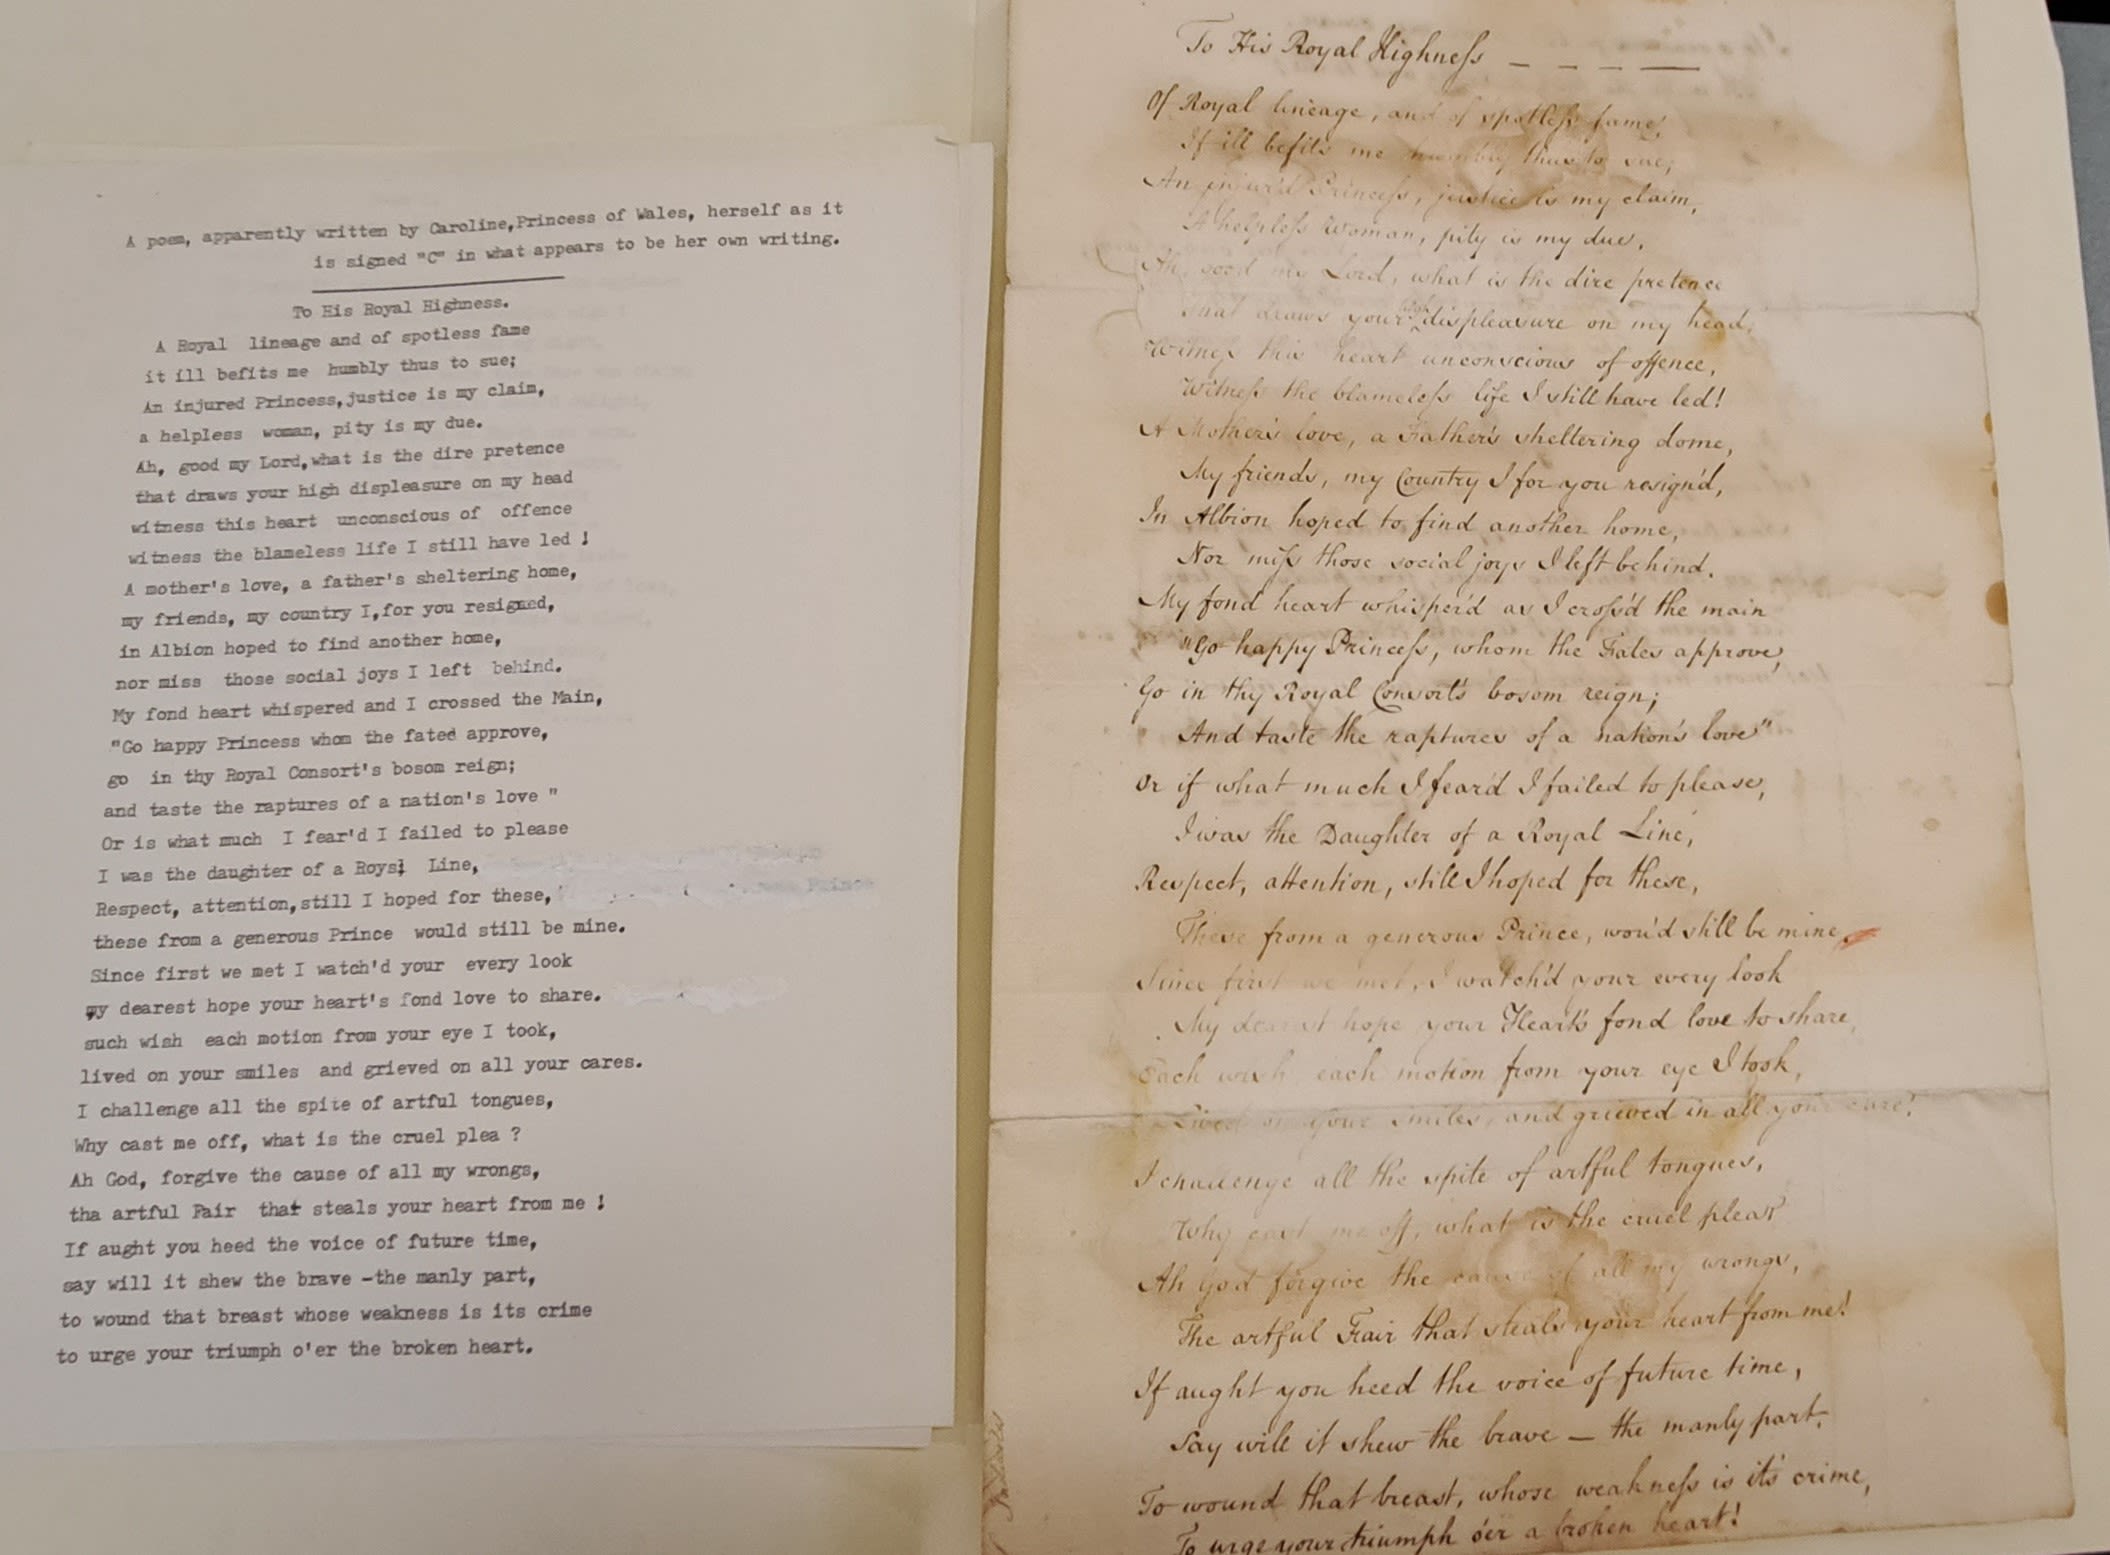 A poem, apparently written by Caroline,Princess of Wales, herself as it
is signed "C" in what appears to be her own writing.
To His Royal Highness.
A Royal lineage and of spotless fame
it ill befits me humbly thus to sue;
An injured Princess,justice is my claim,
a helpless woman, pity is my due.
Ah, good my Lord,what is the dire pretence
that draws your high displeasure on my head
witness this heart unconscious of offence
witness the blameless life I still have led !
A mother's love, a father's sheltering home,
my friends, my country I,for you resigned,
in Albion hoped to find another home,
nor miss those social joys I left behind.
My fond heart whispered and I crossed the Main,
"Go happy Princess whom the fated approve,
go in thy Royal Consort's bosom reign;
and taste the raptures of a nation's love "
Or is what much I fear'd I failed to please
I was the daughter of a Royal Line,
Respect, attention,still I hoped for these,
these from a generous Prince would still be mine.
Since first we met I watch'd your every look
my dearest hope your heart's fond love to share.
such wish each motion from your eye I took,
lived on your smiles and grieved on all your cares.
I challenge all the spite of artful tongues,
Why cast me off, what is the cruel plea ?
Ah God, forgive the cause of all my wrongs,
tha artful Fair that steals your heart from me !
If aught you heed the voice of future time,
say will it shew the brave -the manly part,
to wound that breast whose weakness is its crime
to urge your triumph o'er the broken heart.
To His Royal Highneſs – – – —
Of Royal lineage, and of spotleſs fame,
It ill befits me humbly thus to sue;
An injur'd Princeſs, justice is my claim,
A helpleſs Woman, pity is my due.
Ah, good my Lord, what is the dire pretence
That draws your high displeasure on my head,
Witneſs this heart unconscious of offence,
Witneſs the blameleſs life I still have led!
A Mother's love, a Father's sheltering dome,
My friends, my Country I for you resign'd,
In Albion hoped to find another home,
Nor miſs those social joys I left behind.
My fond heart whisper'd as I croſs'd the main
"Go happy Princeſs, whom the Fates approve,
Go in thy Royal Consort's bosom reign;
And taste the raptures of a nation's love"
Or if what much I fear'd I failed to please,
I was the Daughter of a Royal Line,
Respect, attention, still I hoped for these,
These from a generous Prince, wou'd still be mine.
Since first we met, I watch'd your every look
My dearest hope your Heart's fond love to share,
Each wish each motion from your eye I took,
Lived on your smiles, and grieved in all your care!
I challenge all the spite of artful tongues,
Why cast me off, what is the cruel plea?
Ah God forgive the cause of all my wrongs,
The artful Fair that steals your heart from me!
If aught you heed the voice of future time,
Say will it shew the brave – the manly part,
To wound that breast, whose weakneſs is it's crime,
To urge your triumph o'er a broken heart!